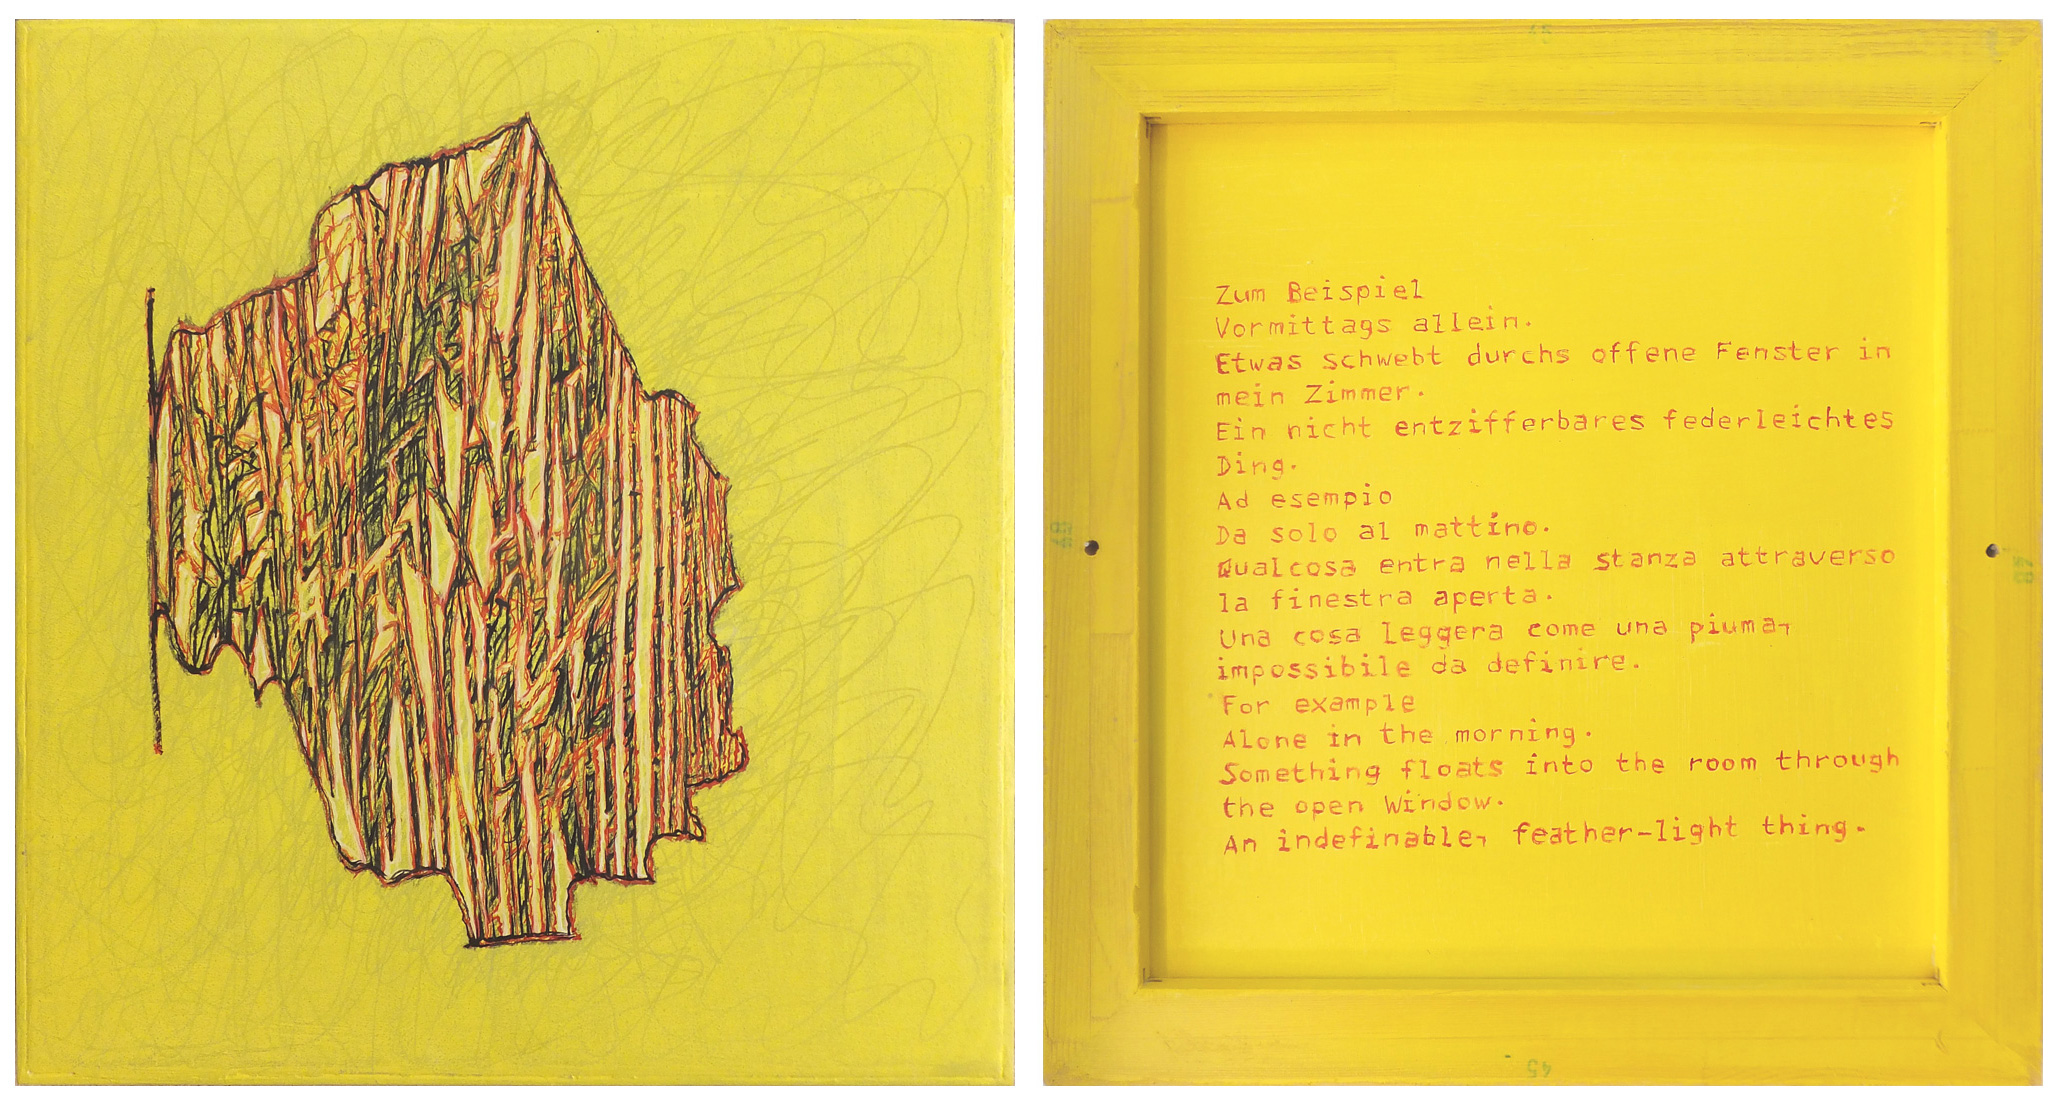 45
Zum Beispiel
Vormittags allein.
Etwas schwebt durchs offene Fenster in
mein Zimmer.
Ein nicht entzifferbares federleichtes
Ding.
Ad esempio
Da solo al mattino.
Qualcosa entra nella stanza attraverso
la finestra aperta.
Una cosa leggera come una piuma,
impossibile da definire.
For example
Alone in the morning.
Something floats into the room through
the open window.
An indefinable, feather-light thing.
48
45